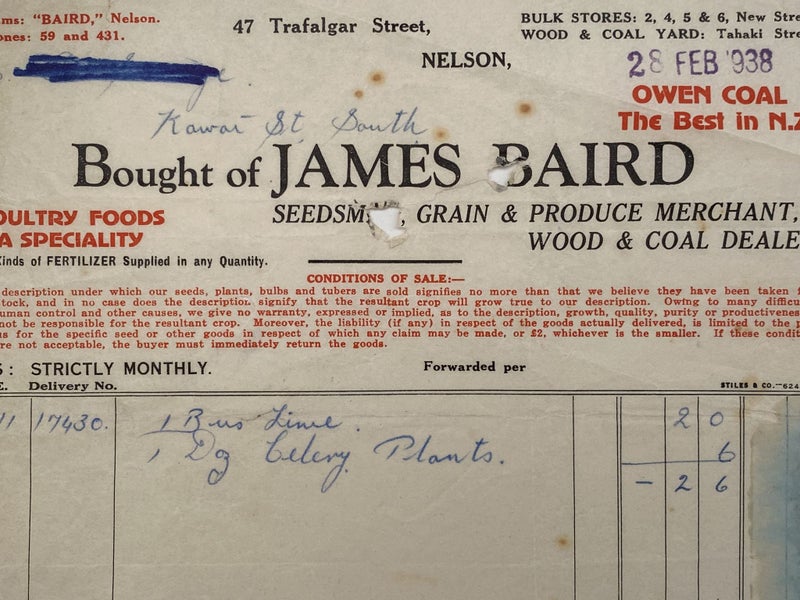 ms: "BAIRD," Nelson.
ones: 59 and 431.
47 Trafalgar Street,
NELSON,
BULK STORES: 2, 4, 5 & 6, New Stre
WOOD & COAL YARD: Tahaki Stre
28 FEB '938
OWEN COAL
The Best in N.Z
Kawai St South
Bought of JAMES BAIRD
OULTRY FOODS
A SPECIALITY
SEEDSM , GRAIN & PRODUCE MERCHANT,
WOOD & COAL DEALE
Kinds of FERTILIZER Supplied in any Quantity.
CONDITIONS OF SALE:—
description under which our seeds, plants, bulbs and tubers are sold signifies no more than that we believe they have been taken f
tock, and in no case does the description signify that the resultant crop will grow true to our description. Owing to many difficu
uman control and other causes, we give no warranty, expressed or implied, as to the description, growth, quality, purity or productivenes
not be responsible for the resultant crop. Moreover, the liability (if any) in respect of the goods actually delivered, is limited to the p
us for the specific seed or other goods in respect of which any claim may be made, or £2, whichever is the smaller. If these condit
re not acceptable, the buyer must immediately return the goods.
S: STRICTLY MONTHLY.
Forwarded per
E. Delivery No.
STILES & CO.—624
11 17430. 1 Bus Lime. 2 0
1 Doz Celery Plants. 6
- 2 6